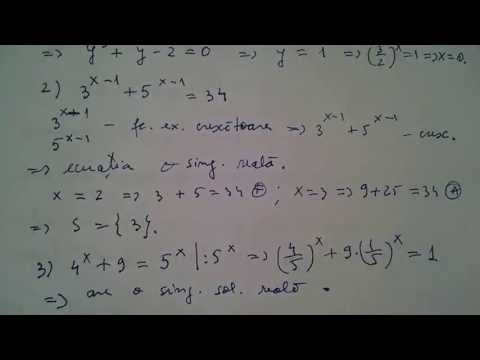 => y² + y - 2 = 0 => y = 1 => (3/2)^x = 1 => x = 0.
2) 3^(x-1) + 5^(x-1) = 34
3^(x-1)
5^(x-1) - fc. ex. crescătoare => 3^(x-1) + 5^(x-1) - cresc.
=> ecuația o sing. reală.
x = 2 => 3 + 5 = 34 Ⓕ ; x = 3 => 9 + 25 = 34 Ⓐ
=> S = {3}.
3) 4^x + 9 = 5^x |: 5^x => (4/5)^x + 9·(1/5)^x = 1
=> are o sing. sol. reală.